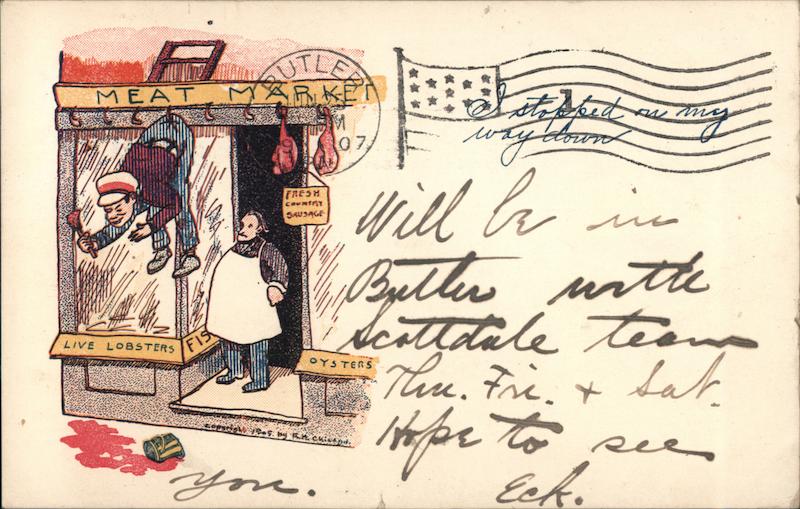 MEAT MARKET
FRESH
COUNTRY
SAUSAGE
LIVE LOBSTERS
FIS
OYSTERS
copyright 1905 by R.H.
BUTLER
07
I stopped on my
way down
Will be in
Butler with
Scottdale team
Thu. Fri. + Sat.
Hope to see
you.
Eck.